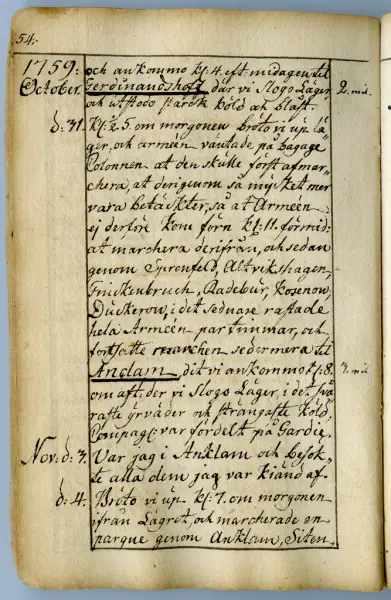 54.
1759. och ankommo kl: 4. eft. midagen til
October. Ferdinandshoff, där vi Slogo Läger, 2. mil.
och utstodo starck köld och blåst.
d: 31. Kl: 5. om morgonen bröto vi up lä-
ger, och arméen vantade på bagage
Colonnen at den skulle först afmar-
chera, at derigenom så mycket mer
vara betäckter, så at Arméen
ej derföre kom förn kl: 11. förmid:
at marchera derifrån, och sedan
genom Sprenfeld, Altvikshagen,
Finckenbruch, Radebur, Kosenow,
Duckerow, i det sednare rastade
hela Arméen par timmar, och
fortsatte marchen sedermera til
Anclam, dit vi ankommo kl: 8. 3. mil
om aft: der vi Slogo Läger, i det svå-
raste yrväder och strängaste köld,
Compagt: var fördelt på Gardie.
Nov: d: 3. Var jag i Anklam och besök-
te alla dem jag var kiänd af.
d: 4. Bröto vi up kl: 7. om morgonen
ifrån Lägret, och marcherade en
parque genom Anklam, Siten-